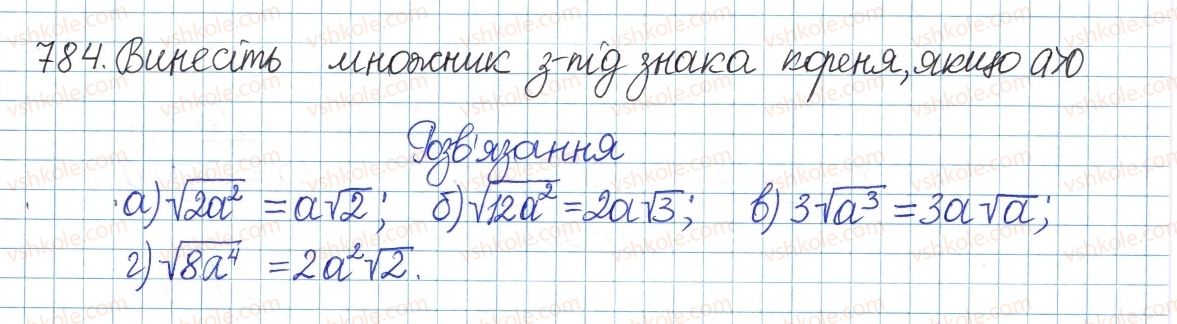 784. Винесіть множник з-під знака кореня, якщо a>0
Розв'язання
а) √2a² = a√2; б) √12a² = 2a√3; в) 3√a³ = 3a√a;
г) √8a⁴ = 2a²√2.